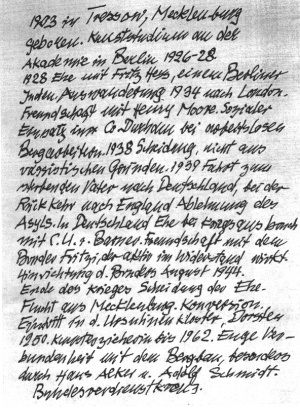 1903 in Tressow, Mecklenburg
geboren. Kunststudium an der
Akademie in Berlin 1926-28
1928 Ehe mit Fritz Hess, einem Berliner
Juden. Auswanderung 1934 nach London.
Freundschaft mit Henry Moore. Sozialer
Einsatz im Co. Durham bei arbeitslosen
Bergarbeitern. 1938 Scheidung, nicht aus
rassistischen Gründen. 1939 Fahrt zum
sterbenden Vater nach Deutschland, bei der
Rückkehr nach England Ablehnung des
Asyls. In Deutschland Ehe bei Kriegsausbruch
mit C.U. v. Barner. Freundschaft mit dem
Bruder Fritzi, der aktiv im Widerstand wirkt.
Hinrichtung d. Bruders August 1944.
Ende des Krieges Scheidung der Ehe.
Flucht aus Mecklenburg. Konversion.
Eintritt in d. Ursulinen Kloster, Dorsten
1950. Kunsterzieherin bis 1962. Enge Ver-
bundenheit mit dem Bergbau, besonders
durch Hans Acker u. Adolf Schmidt.
Bundesverdienstkreuz.